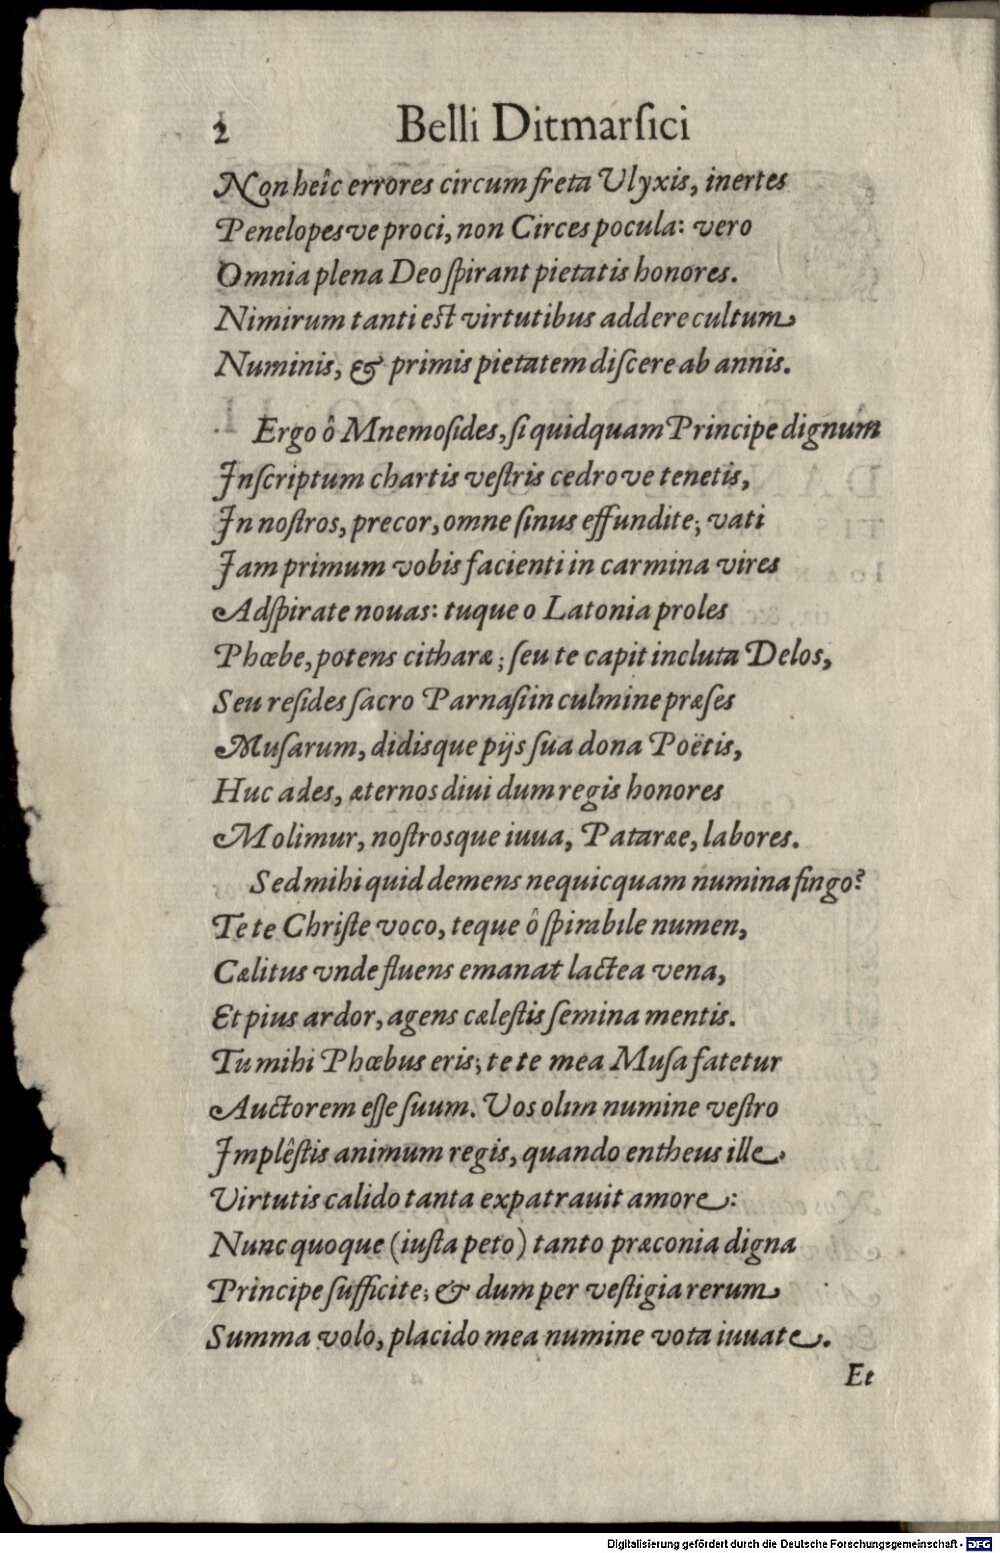 2 Belli Ditmarſici
Non heîc errores circum freta Ulyxis, inertes
Penelopesve proci, non Circes pocula: vero
Omnia plena Deo ſpirant pietatis honores.
Nimirum tanti eſt virtutibus addere cultum
Numinis, & primis pietatem diſcere ab annis.
Ergo ô Mnemoſides, ſi quidquam Principe dignum
Inſcriptum chartis veſtris cedrove tenetis,
In noſtros, precor, omne ſinus effundite; vati
Jam primum vobis facienti in carmina vires
Adſpirate nouas: tuque o Latonia proles
Phœbe, potens citharæ; ſeu te capit incluta Delos,
Seu reſides ſacro Parnaſi in culmine præſes
Muſarum, didisque pijs ſua dona Poëtis,
Huc ades, æternos diui dum regis honores
Molimur, noſtrosque iuua, Pataræe, labores.
Sed mihi quid demens nequicquam numina fingo?
Te te Chriſte voco, teque ô ſpirabile numen,
Cælitus vnde fluens emanat lactea vena,
Et pius ardor, agens cæleſtis ſemina mentis.
Tu mihi Phœbus eris; te te mea Muſa fatetur
Auctorem eſſe ſuum. Vos olim numine veſtro
Implêſtis animum regis, quando entheus ille
Virtutis calido tanta expatrauit amore:
Nunc quoque (iuſta peto) tanto præconia digna
Principe ſufficite; & dum per veſtigia rerum
Summa volo, placido mea numine vota iuuate.
Et
Digitalisierung gefördert durch die Deutsche Forschungsgemeinschaft - DFG